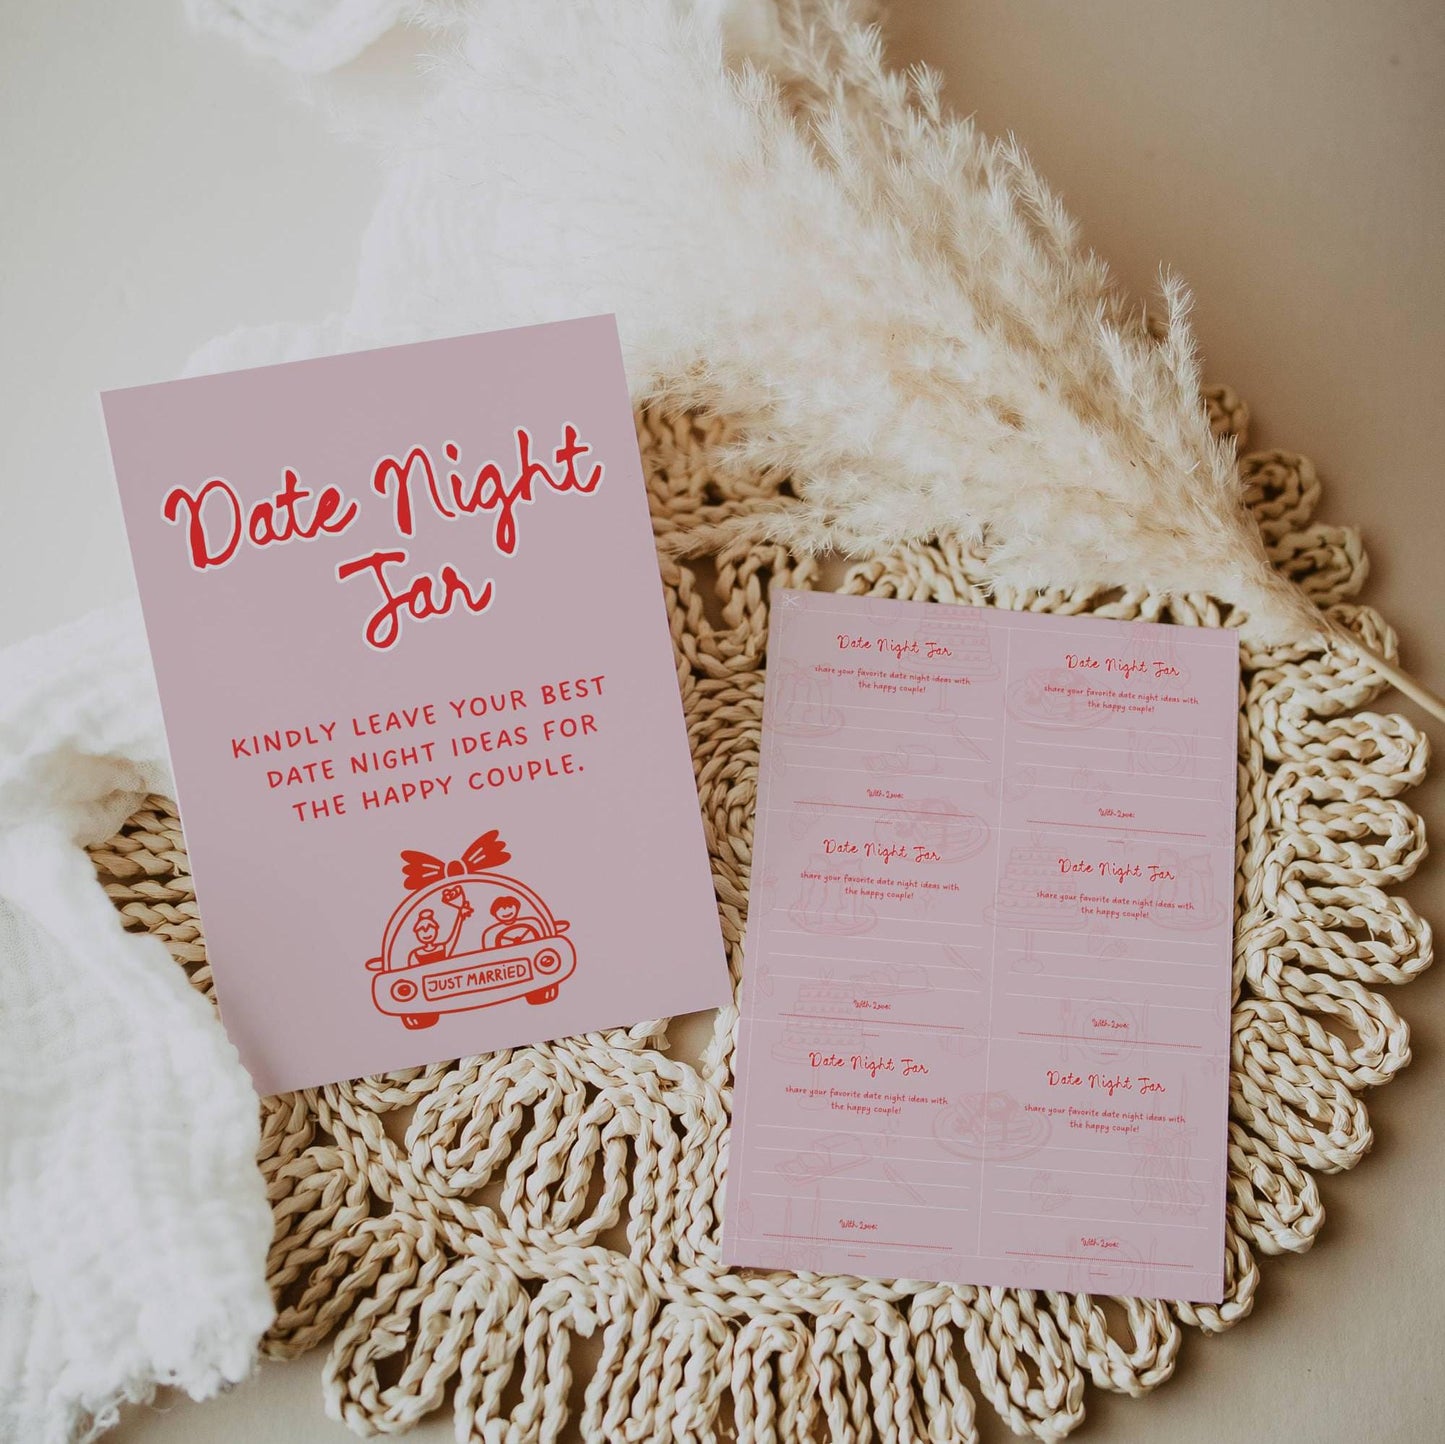 Date Night
Jar
KINDLY LEAVE YOUR BEST
DATE NIGHT IDEAS FOR
THE HAPPY COUPLE.
JUST MARRIED
Date Night Jar
share your favorite date night ideas with
the happy couple!
With Love:
Date Night Jar
share your favorite date night ideas with
the happy couple!
With Love:
Date Night Jar
share your favorite date night ideas with
the happy couple!
With Love:
Date Night Jar
share your favorite date night ideas with
the happy couple!
With Love:
Date Night Jar
share your favorite date night ideas with
the happy couple!
With Love:
Date Night Jar
share your favorite date night ideas with
the happy couple!
With Love: